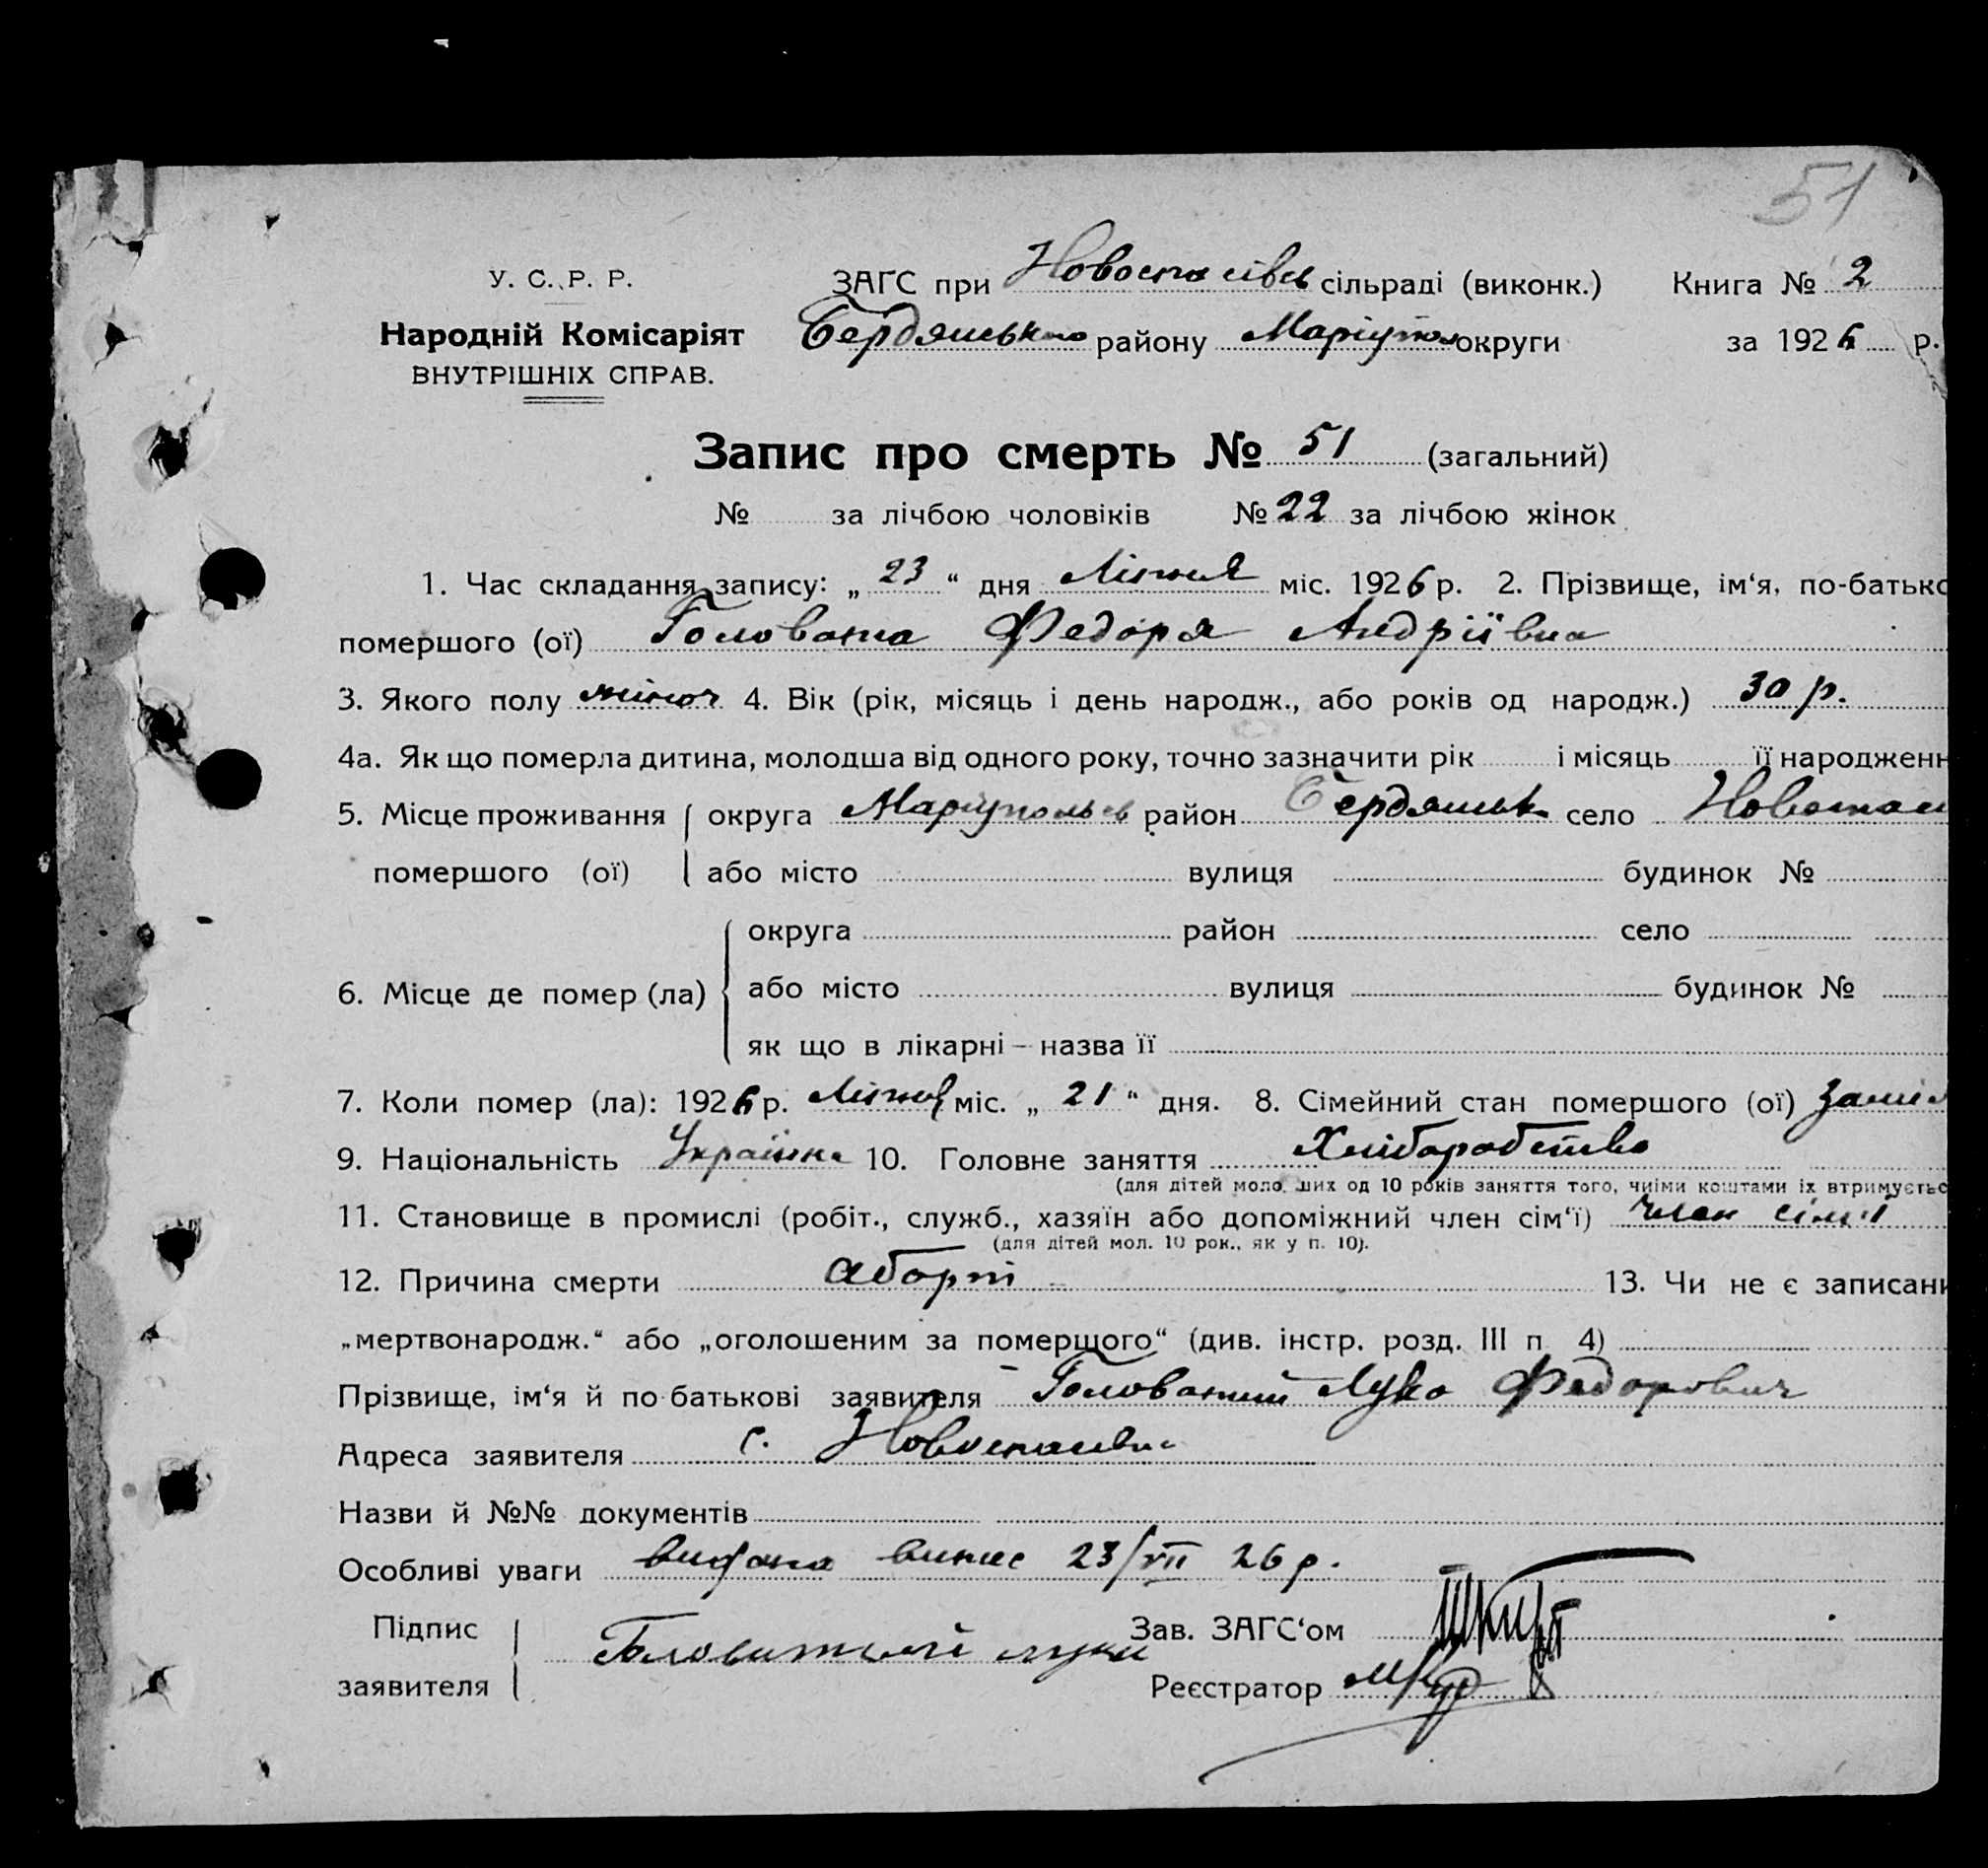 51
У. С. Р. Р.
ЗАГС при Новоспасівсь сільраді (виконк.) Книга № 2
Народній Комісаріят
Бердянського району Маріупол округи за 1926 р.
ВНУТРІШНІХ СПРАВ.
Запис про смерть № 51 (загальний)
№ за лічбою чоловіків № 22 за лічбою жінок
1. Час складання запису: „ 23 “ дня Липня міс. 1926 р. 2. Прізвище, ім‘я, по-батько
помершого (ої) Головата Федора Андріївна
3. Якого полу жіноч 4. Вік (рік, місяць і день народж., або років од народж.) 30 р.
4а. Як що померла дитина, молодша від одного року, точно зазначити рік і місяць її народженн
5. Місце проживання округа Маріупольсь район Бердянськ село Новоспас
помершого (ої) або місто вулиця будинок №
округа район село
6. Місце де помер (ла) або місто вулиця будинок №
як що в лікарні – назва її
7. Коли помер (ла): 1926 р. Липня міс. „ 21 “ дня. 8. Сімейний стан помершого (ої)
9. Національність Українка 10. Головне заняття Хліборобство
(для дітей молодших од 10 років заняття того, чиїми коштами їх втримуєтьс
11. Становище в промислі (робіт., служб., хазяїн або допоміжний член сім‘ї) член сім'ї
(для дітей мол. 10 рок., як у п. 10).
12. Причина смерти аборт 13. Чи не є записани
„мертвонародж.“ або „оголошеним за померщого“ (див. інстр. розд. III п 4)
Прізвище, ім‘я й по батькові заявителя Головатий Лука Федорович
Адреса заявителя с. Новоспасівка
Назви й №№ документів
Особливі уваги видана випис 23/VII 26 р.
Підпис Зав. ЗАГС‘ом
заявителя Луки Реєстратор